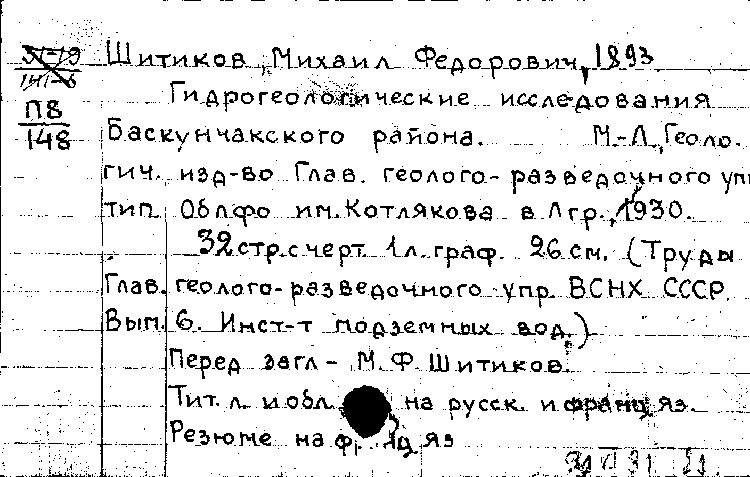 Шитиков, Михаил Федорович, 1893
П8
148
Гидрогеологические исследования
Баскунчакского района. М.-Л., Геоло.
гич. изд-во Глав. геолого-разведочного упр
тип. Облфо им. Котлякова в Лгр., 1930.
32 стр. с черт. 1 л. граф. 26 см. (Труды
Глав. геолого-разведочного упр. ВСНХ СССР.
Вып. 6. Инст-т подземных вод.)
Перед загл - М. Ф. Шитиков.
Тит. л. и обл. на русск. и франц. яз.
Резюме на яз